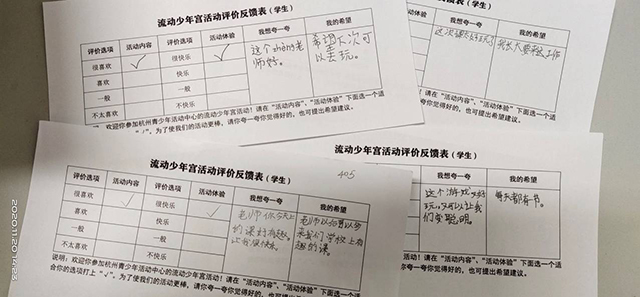 流动少年宫活动评价反馈表（学生）
评价选项 活动内容 评价选项 活动体验 我想夸一夸 我的希望
很喜欢 √ 很快乐 √
这个 老师好。
希望下次可以去玩。
喜欢 快乐
一般 一般
不太喜欢 不快乐
欢迎你参加杭州青少年活动中心的流动少年宫活动！请在“活动内容”、“活动体验”下面选一个适
“√”。为了使我们的活动更棒，请你夸一夸你觉得好的，也可提出希望建议。
我想夸一夸 我的希望
动！请在“活动内容”、“活动体验”下面选一个适
夸一夸你觉得好的，也可提出希望建议。
流动少年宫活动评价反馈表（学生）
405
评价选项 活动内容 评价选项 活动体验 我想夸一夸 我的希望
很喜欢 √ 很快乐 √
老师你今天上的课好有趣，让我很快乐
老师以后可以多来我们学校上有趣的课。
喜欢 快乐
一般 一般
不太喜欢 不快乐
说明：欢迎你参加杭州青少年活动中心的流动少年宫活动！请在“活动内容”、“活动体验”下面选一个适
合你的选项打上“√”。为了使我们的活动更棒，请你夸一夸你觉得好的，也可提出希望建议。
活动评价反馈表（学生）
活动体验 我想夸一夸 我的希望
这个游戏又好玩，又可以让我们变聪明。
每天都有书。
活动！请在“活动内容”、“活动体验”下面选一个适
请你夸一夸你觉得好的，也可提出希望建议。
2020.11.20 14:23